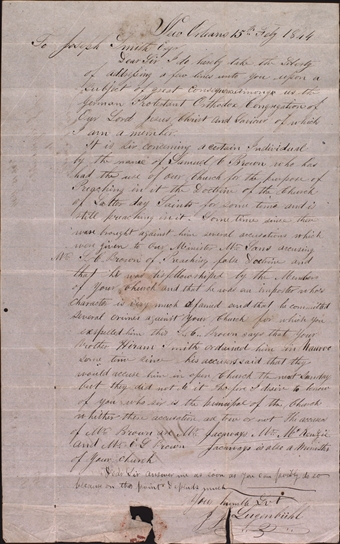 New Orleans 15th Feby 1844
To Joseph Smith Esqr
Dear Sir I do hereby take the liberty
of addressing a few lines unto you upon a
subject of great consequence amongst us the
German Protestant Orthodox Congregation of
Our Lord Jesus Christ and Saviour of which
I am a member.
It is Sir concerning a certain Individual
by the name of Samuel C Brown who has
had the use of our Church for the purpose of
Preaching in it the Doctrin of the Church
of Latter day Saints for some time and is
still preaching in it. Some time since there
were brought against him several accusations which
were given to Our Minister Mr Sans accusing
Mr S C Brown of Preaching fals Doctrine and
that he was disfellowshiped by the Members
of Your Church and that he was an imposter who's
character is very much defamed and that he committed
several crimes against Your Church for which you
expelled him this S C Brown says that your
Brother Hiram Smith ordained him in Nauvoo
some time since his accusers said that they
would accuse him in open Church the next Sunday
but they did not do it therefore I desire to know
of you who are is the principal of the Church
whether these accusation are true or not The accusers
of Mr Brown are Mr Jacquays Mr McKenzie
and Mr E G Brown Jacquays is also a Minister
of Your Church
Dear Sir answer me as soon as you can possibly do so
because on this point depends much
Your humble Svt
J J Luginbühl